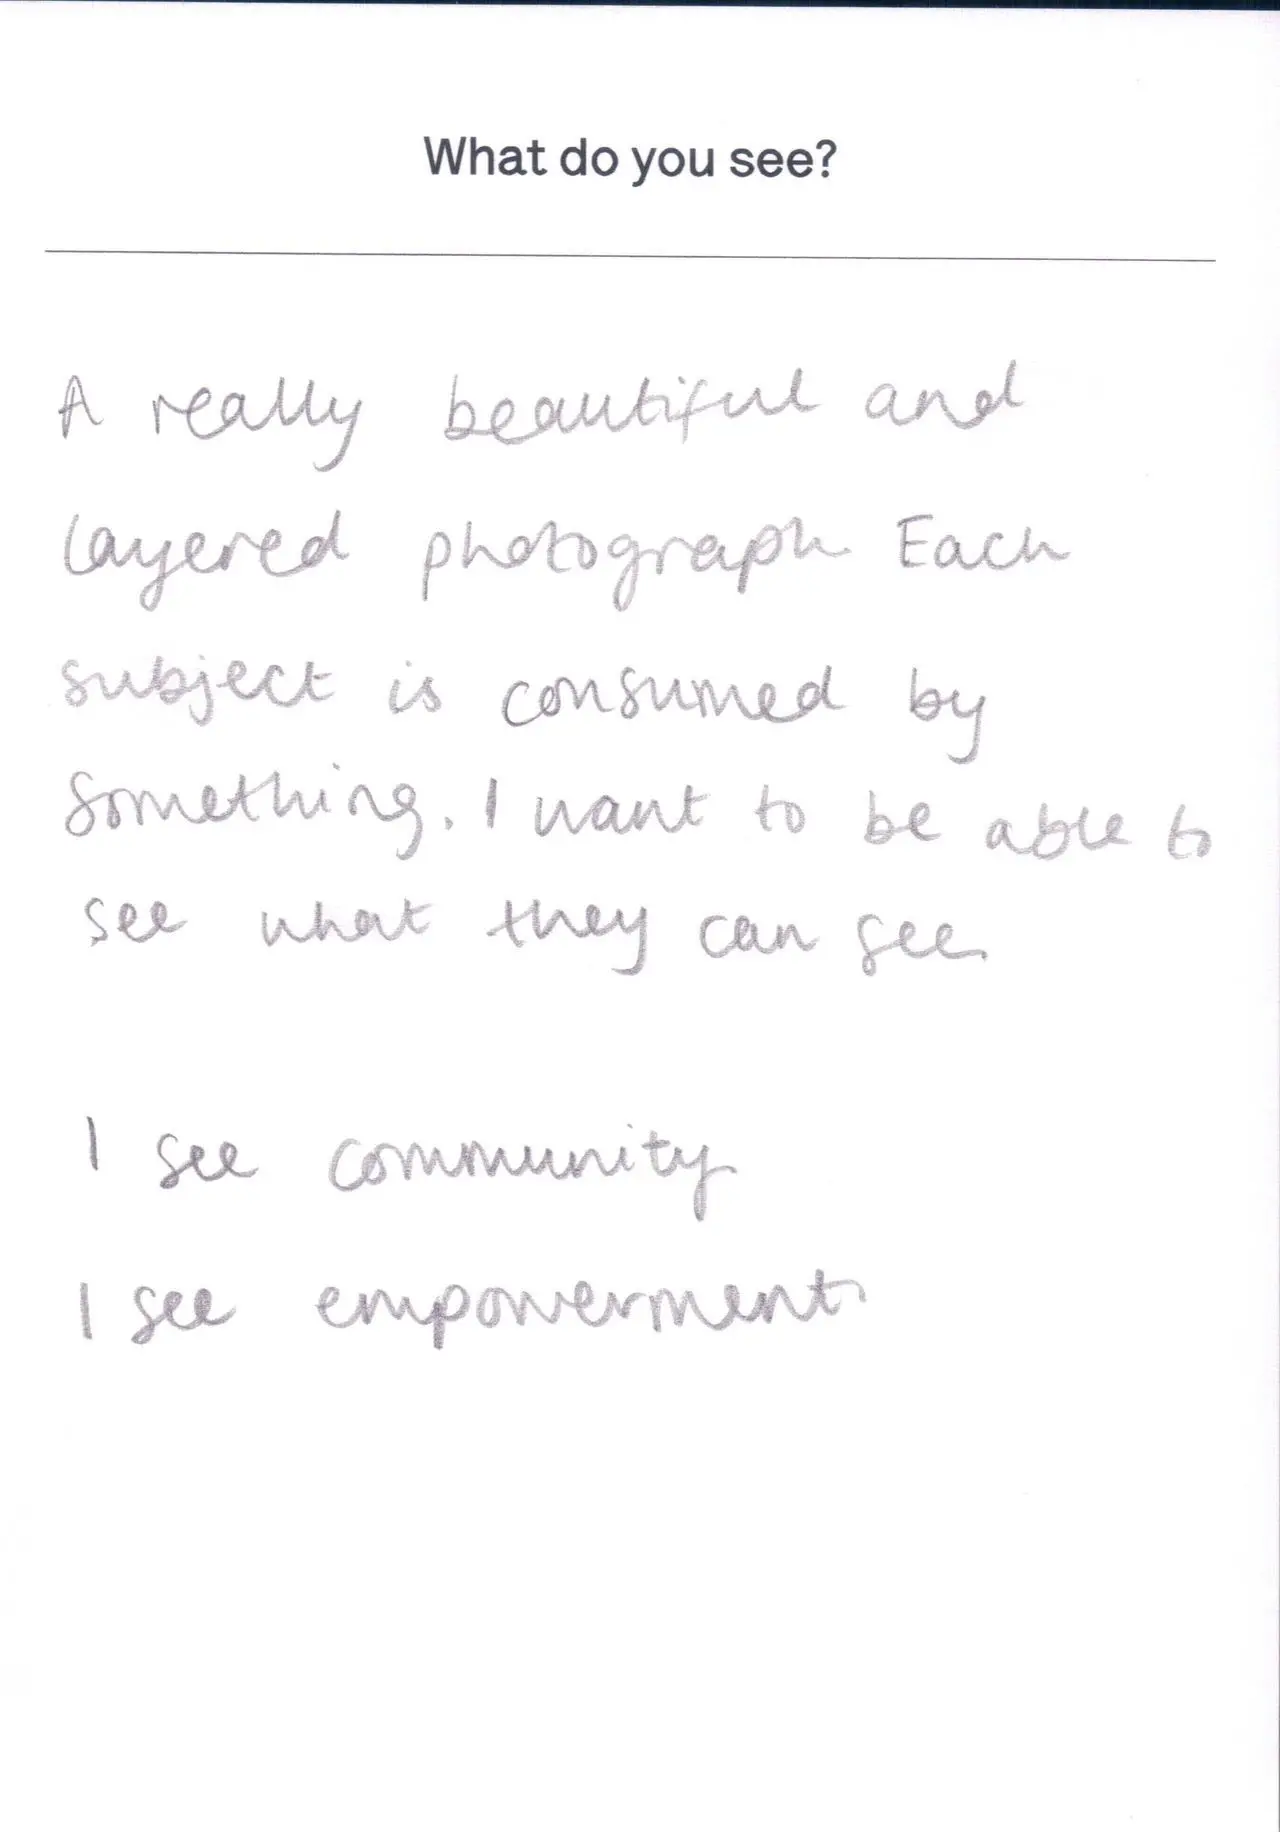 What do you see?
A really beautiful and
layered photograph. Each
subject is consumed by
something. I want to be able to
see what they can see.
I see community
I see empowerment